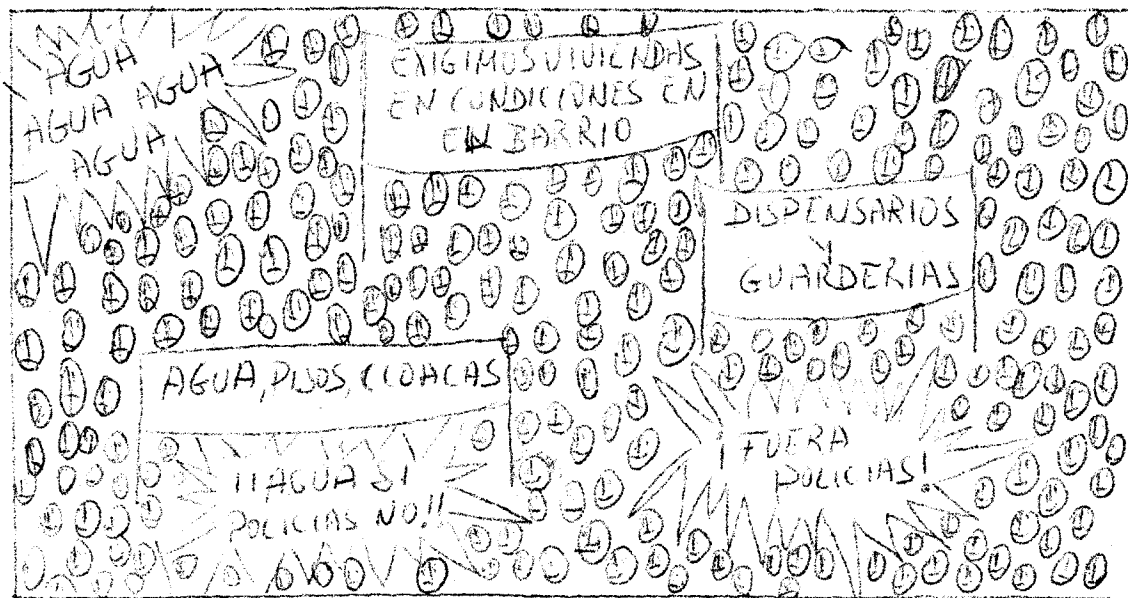 AGUA
AGUA AGUA
AGUA
EXIGIMOS VIVIENDAS
EN CONDICIONES EN
EN BARRIO
DISPENSARIOS
Y
GUARDERIAS
AGUA, PISOS, CLOACAS
¡¡AGUA SI
POLICIAS NO!!
¡FUERA
POLICIAS!